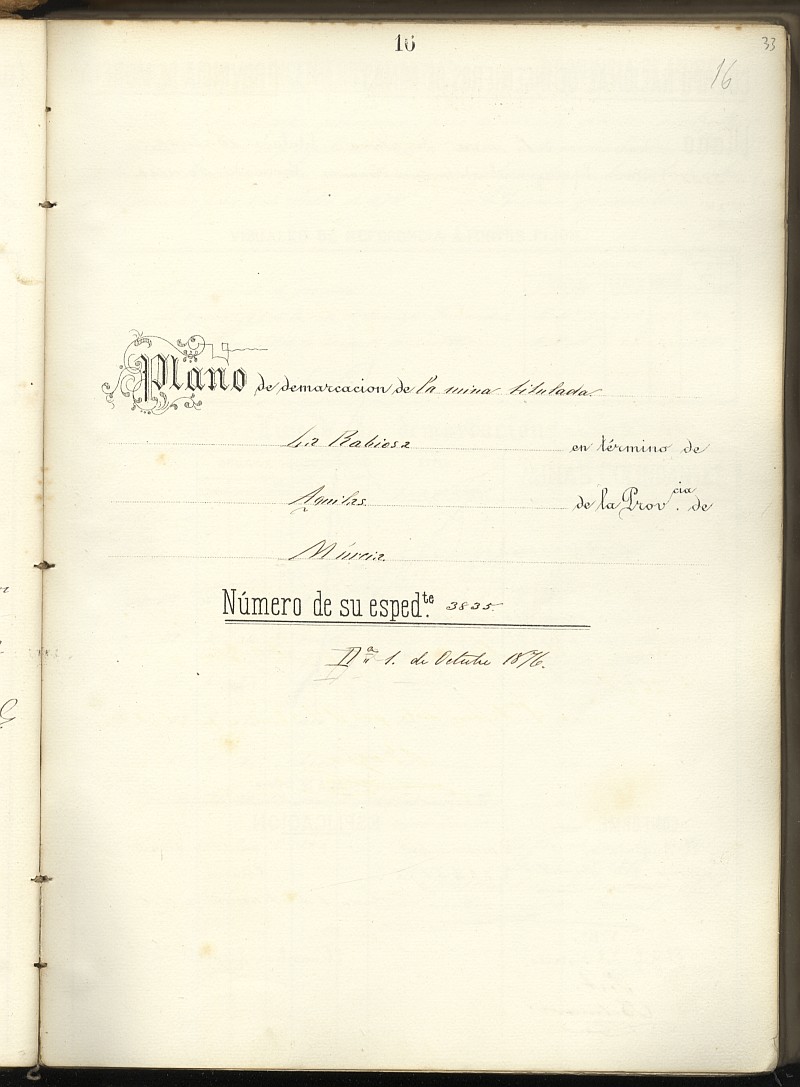 16
33
16
Plano de demarcacion de la mina titulada
La Rabiosa en término de
Aguilas de la Prov.cia de
Múrcia.
Número de su esped.te 3835.
1. de Octubre 1876.